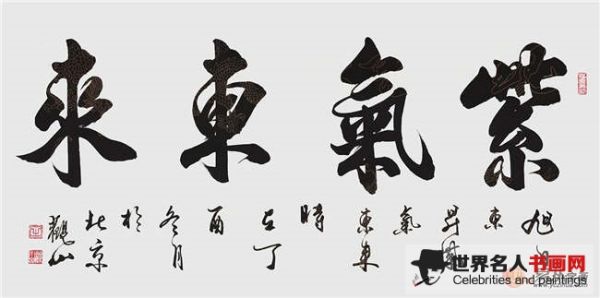 紫氣東來
旭日
東
昇
氣
東来
時
在丁
酉
冬月
於
北京
觀山
世界名人书画网
Celebrities and paintings